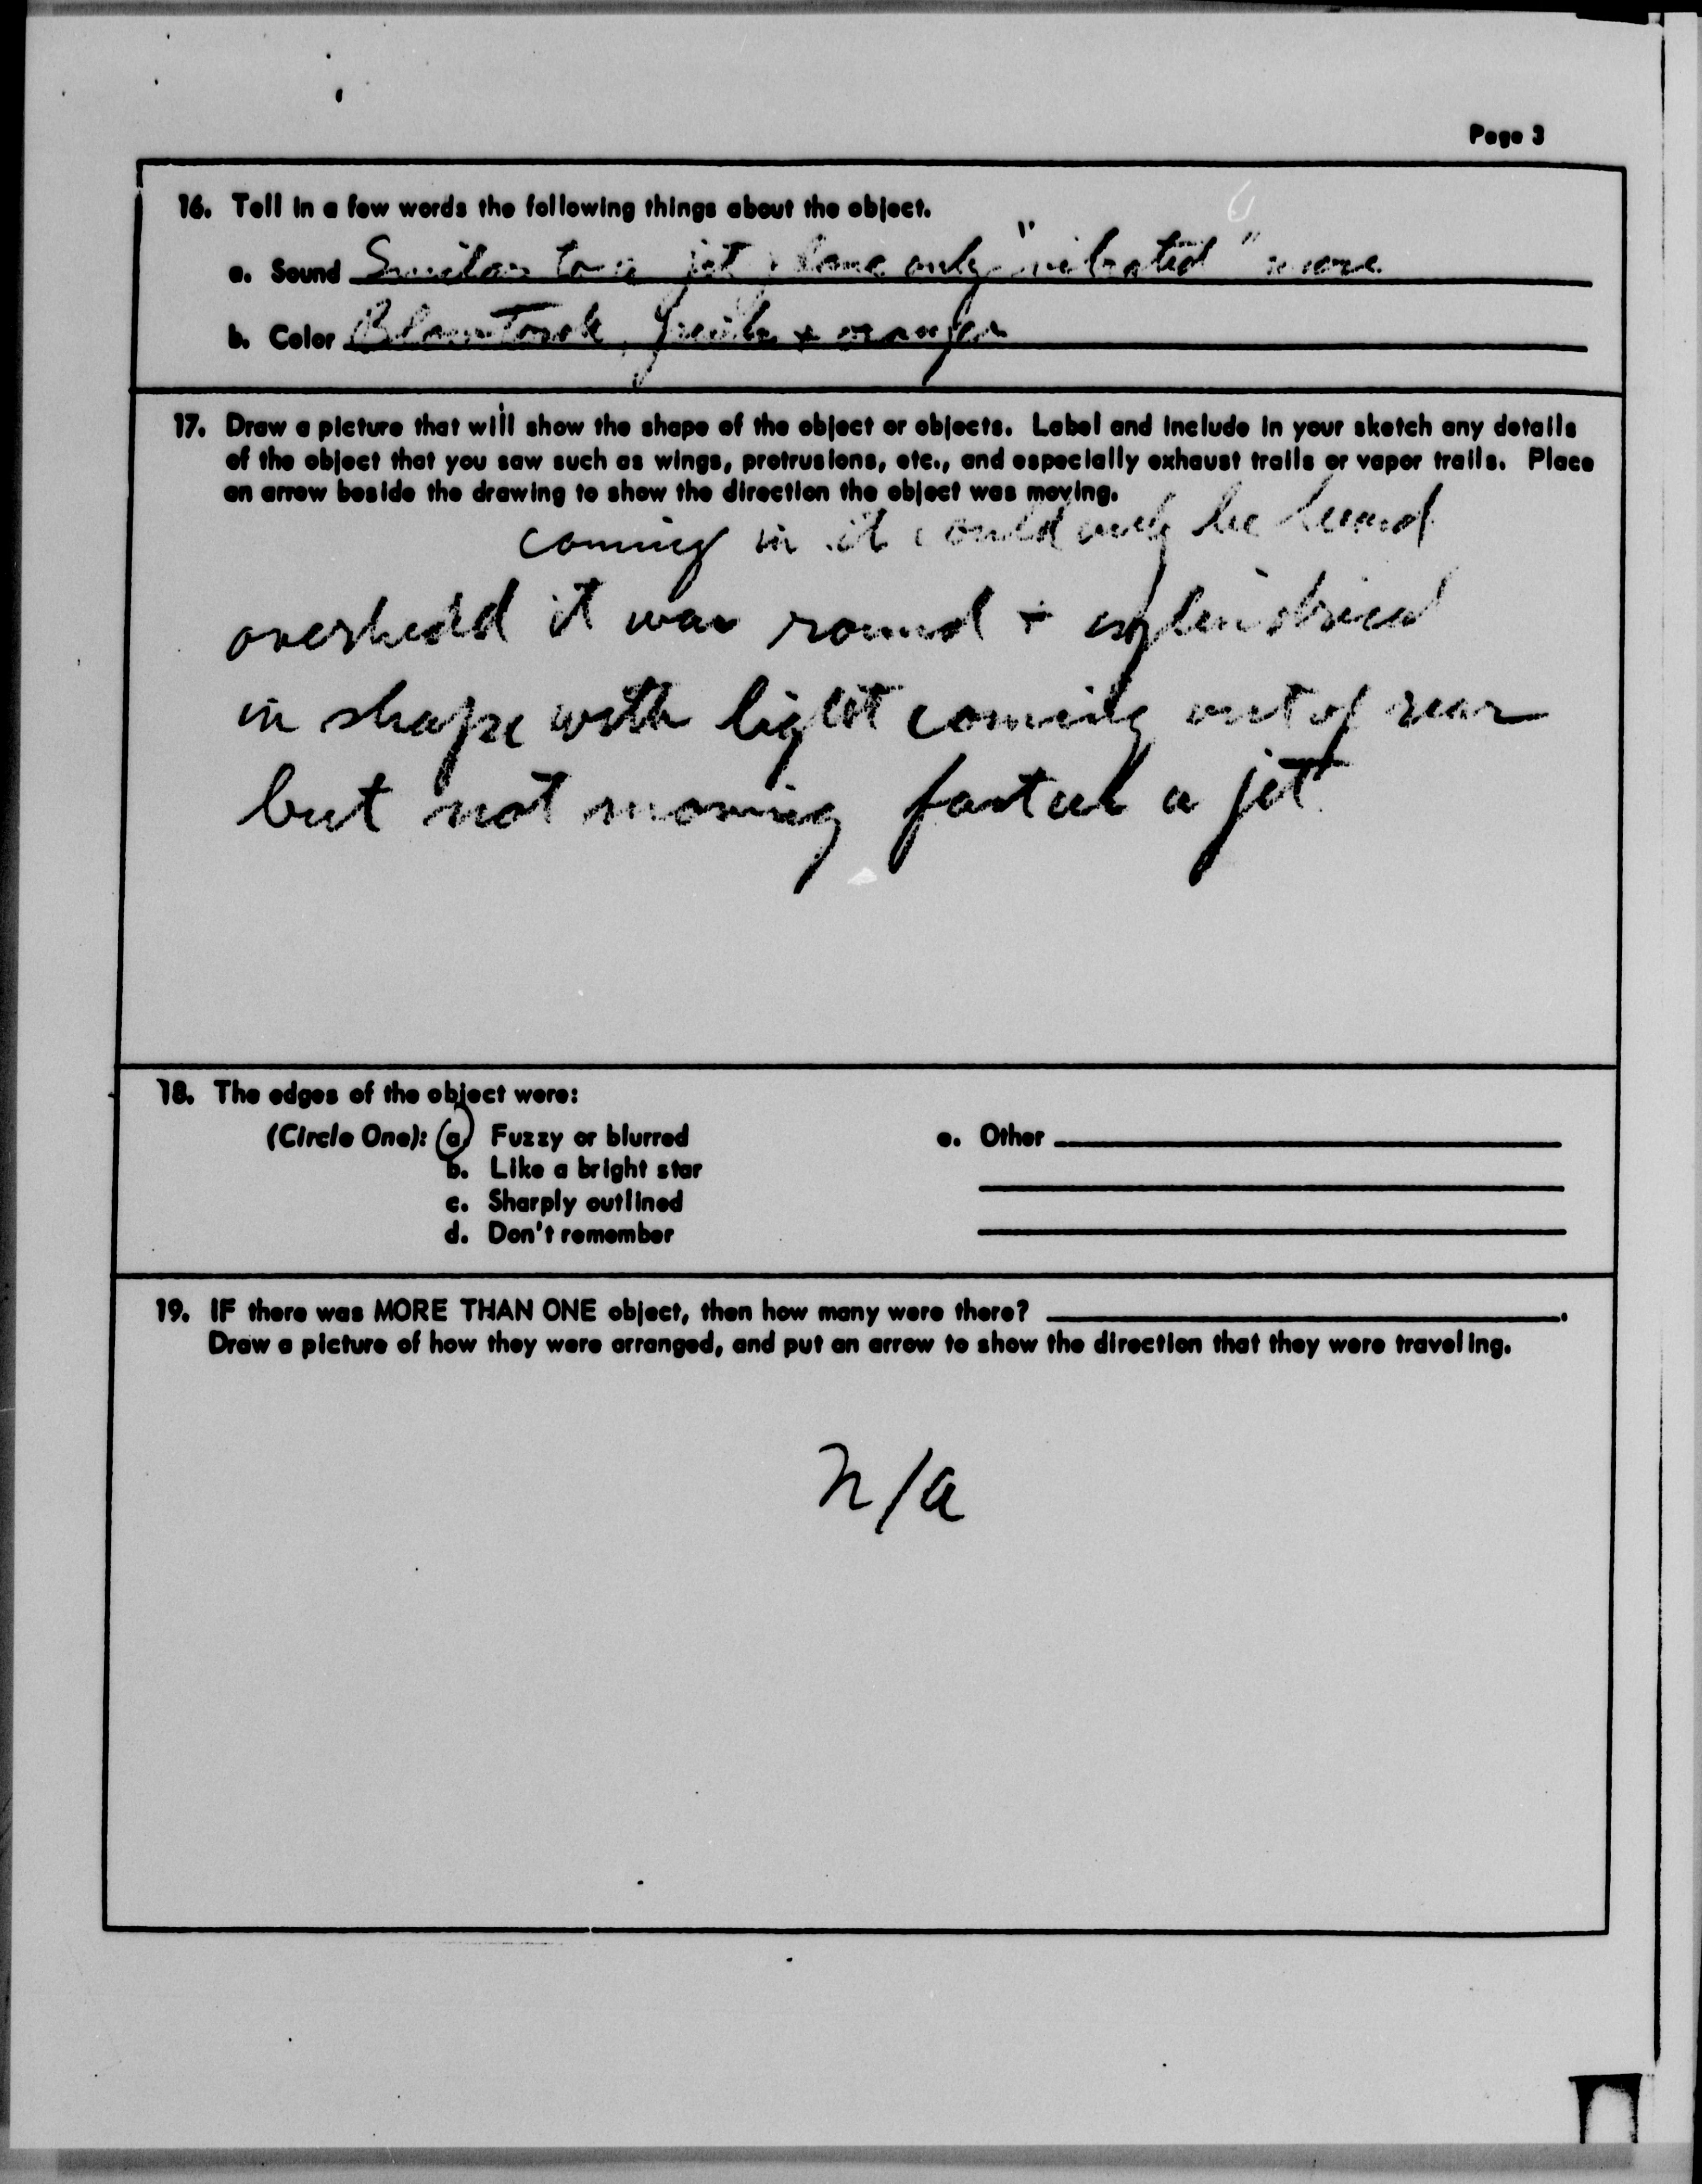 Page 3
16. Tell in a few words the following things about the object.
a. Sound Similar to a jet plane only "vibrated" more
b. Color Blowtorch, & orange
17. Draw a picture that will show the shape of the object or objects. Label and include in your sketch any details
of the object that you saw such as wings, protrusions, etc., and especially exhaust trails or vapor trails. Place
an arrow beside the drawing to show the direction the object was moving.
coming in it could only be heard
overhead it was round + cylindrical
in shape with light coming out of rear
but not moving faster a jet
18. The edges of the object were:
(Circle One): a. Fuzzy or blurred e. Other
b. Like a bright star
c. Sharply outlined
d. Don't remember
19. IF there was MORE THAN ONE object, then how many were there?
Draw a picture of how they were arranged, and put an arrow to show the direction that they were traveling.
n/a